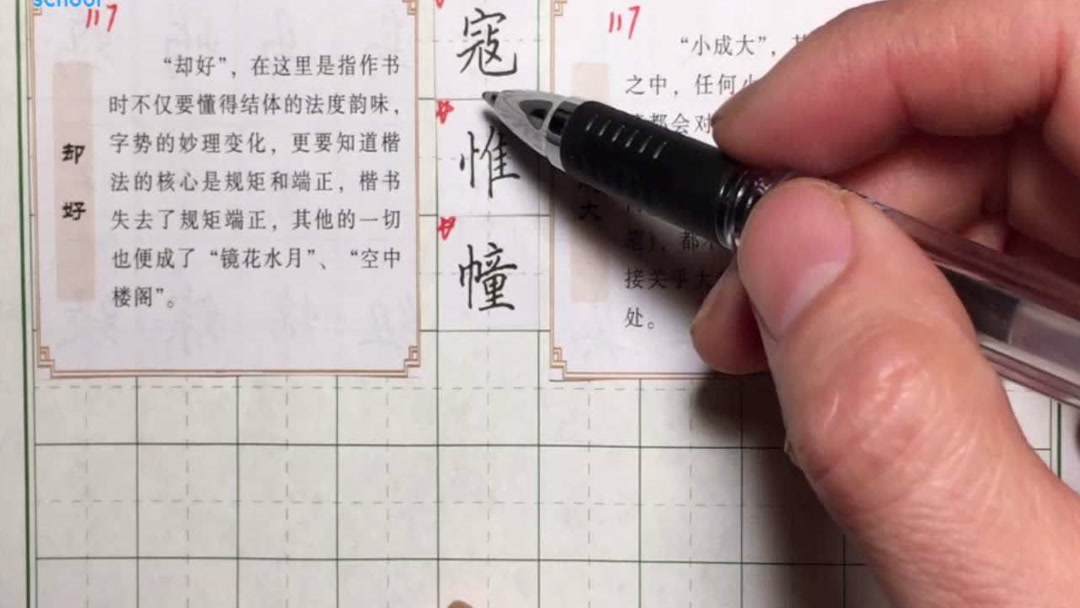 school
117
“却好”，在这里是指作书
时不仅要懂得结体的法度韵味，
字势的妙理变化，更要知道楷
法的核心是规矩和端正，楷书
失去了规矩端正，其他的一切
也便成了“镜花水月”、“空中
楼阁”。
却好
寇
惟
幢
117
“小成大”，
之中，任何小
都会对
大
都
接关乎大
处。